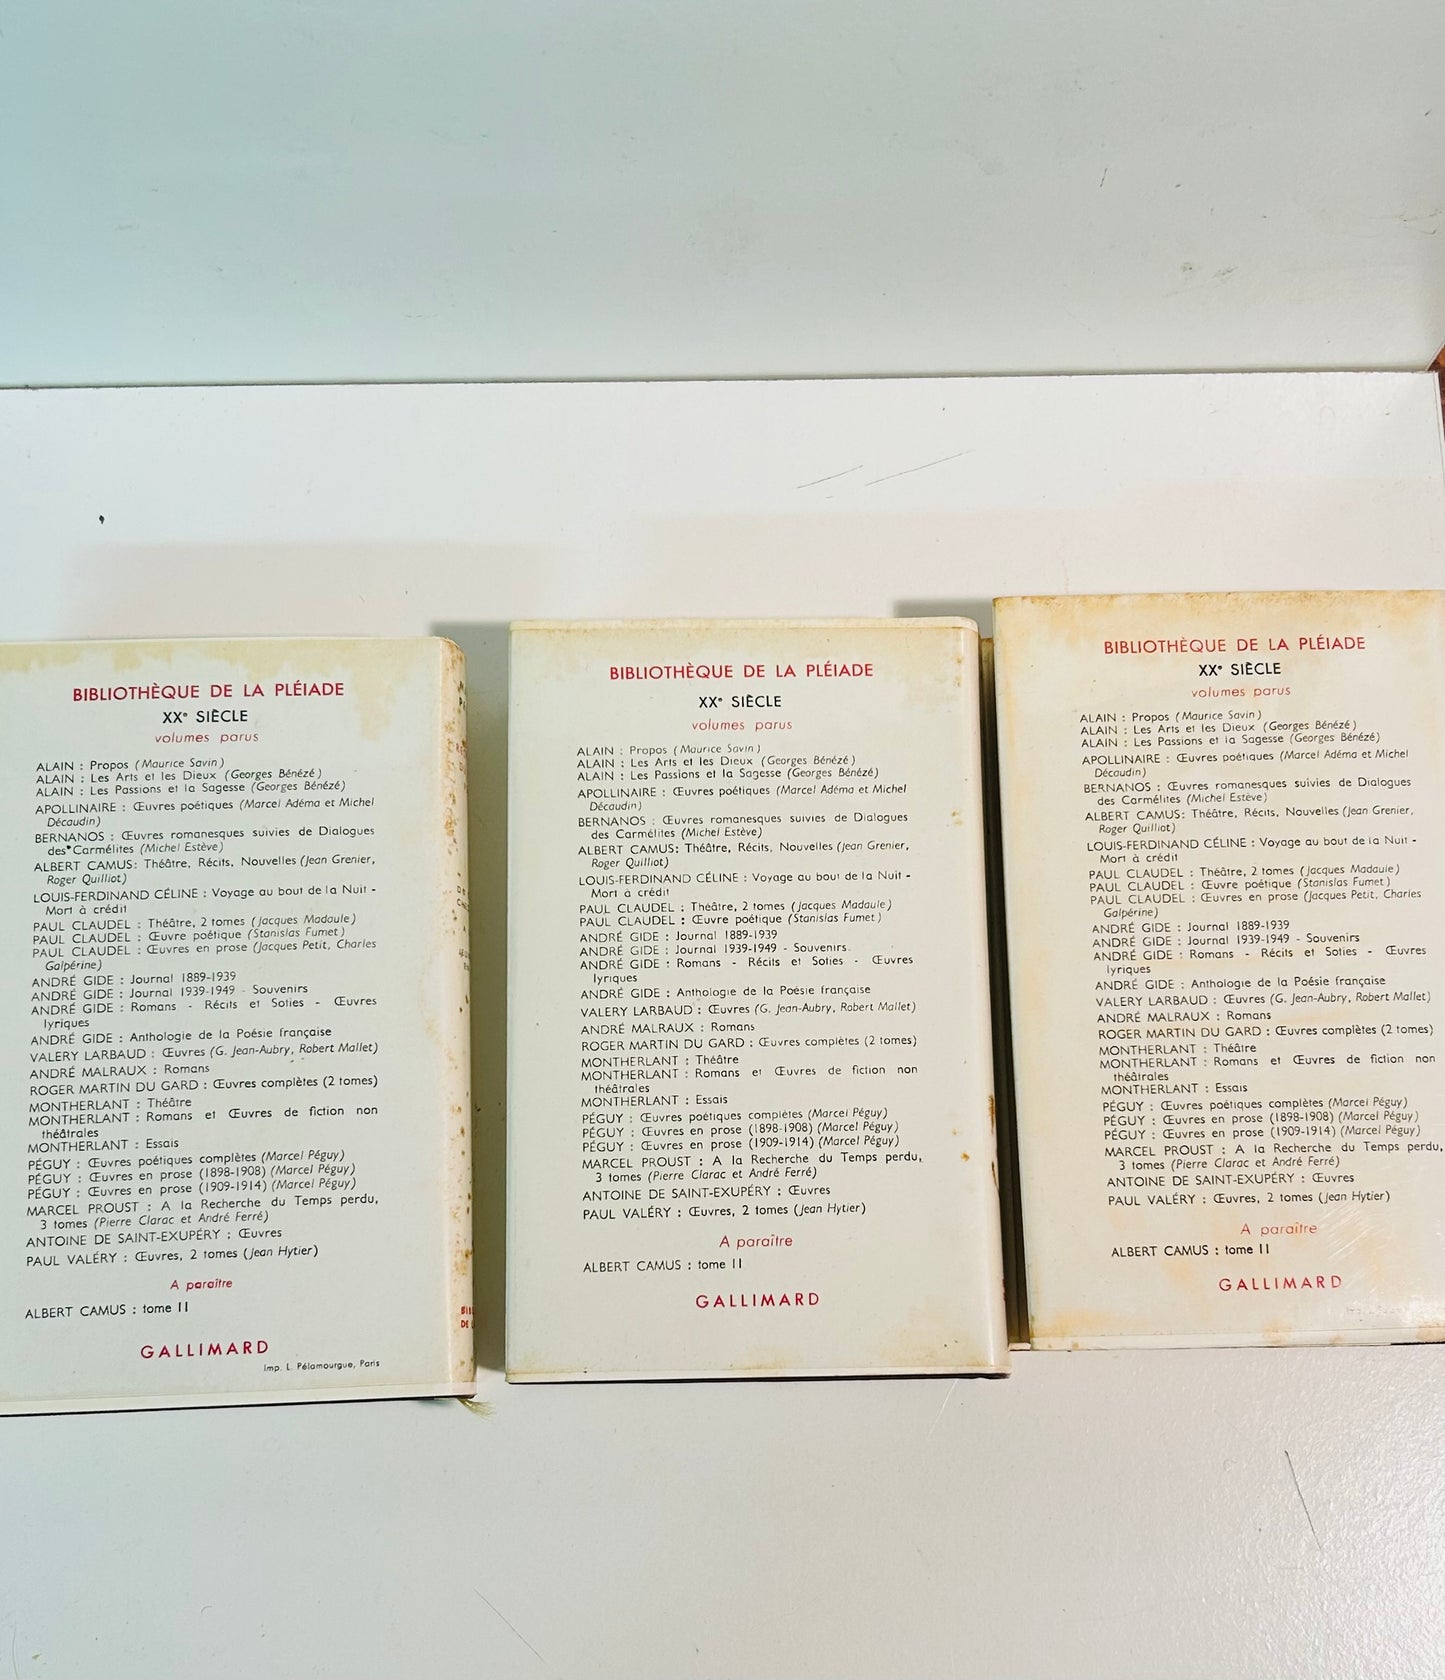 BIBLIOTHÈQUE DE LA PLÉIADE
XXe SIÈCLE
volumes parus
ALAIN : Propos (Maurice Savin)
ALAIN : Les Arts et les Dieux (Georges Bénézé)
ALAIN : Les Passions et la Sagesse (Georges Bénézé)
APOLLINAIRE : Œuvres poétiques (Marcel Adéma et Michel
Décaudin)
BERNANOS : Œuvres romanesques suivies de Dialogues
des Carmélites (Michel Estève)
ALBERT CAMUS: Théâtre, Récits, Nouvelles (Jean Grenier,
Roger Quilliot)
LOUIS-FERDINAND CÉLINE : Voyage au bout de la Nuit -
Mort à crédit
PAUL CLAUDEL : Théâtre, 2 tomes (Jacques Madaule)
PAUL CLAUDEL : Œuvre poétique (Stanislas Fumet)
PAUL CLAUDEL : Œuvres en prose (Jacques Petit, Charles
Galpérine)
ANDRÉ GIDE : Journal 1889-1939
ANDRÉ GIDE : Journal 1939-1949 - Souvenirs
ANDRÉ GIDE : Romans - Récits et Soties - Œuvres
lyriques
ANDRÉ GIDE : Anthologie de la Poésie française
VALERY LARBAUD : Œuvres (G. Jean-Aubry, Robert Mallet)
ANDRÉ MALRAUX : Romans
ROGER MARTIN DU GARD : Œuvres complètes (2 tomes)
MONTHERLANT : Théâtre
MONTHERLANT : Romans et Œuvres de fiction non
théâtrales
MONTHERLANT : Essais
PÉGUY : Œuvres poétiques complètes (Marcel Péguy)
PÉGUY : Œuvres en prose (1898-1908) (Marcel Péguy)
PÉGUY : Œuvres en prose (1909-1914) (Marcel Péguy)
MARCEL PROUST : A la Recherche du Temps perdu,
3 tomes (Pierre Clarac et André Ferré)
ANTOINE DE SAINT-EXUPÉRY : Œuvres
PAUL VALÉRY : Œuvres, 2 tomes (Jean Hytier)
A paraître
ALBERT CAMUS : tome II
GALLIMARD
Imp. L. Pélamourgue, Paris
BIBLIOTHÈQUE DE LA PLÉIADE
XXe SIÈCLE
volumes parus
ALAIN : Propos (Maurice Savin)
ALAIN : Les Arts et les Dieux (Georges Bénézé)
ALAIN : Les Passions et la Sagesse (Georges Bénézé)
APOLLINAIRE : Œuvres poétiques (Marcel Adéma et Michel
Décaudin)
BERNANOS : Œuvres romanesques suivies de Dialogues
des Carmélites (Michel Estève)
ALBERT CAMUS: Théâtre, Récits, Nouvelles (Jean Grenier,
Roger Quilliot)
LOUIS-FERDINAND CÉLINE : Voyage au bout de la Nuit -
Mort à crédit
PAUL CLAUDEL : Théâtre, 2 tomes (Jacques Madaule)
PAUL CLAUDEL : Œuvre poétique (Stanislas Fumet)
ANDRÉ GIDE : Journal 1889-1939
ANDRÉ GIDE : Journal 1939-1949 - Souvenirs
ANDRÉ GIDE : Romans - Récits et Soties - Œuvres
lyriques
ANDRÉ GIDE : Anthologie de la Poésie française
VALERY LARBAUD : Œuvres (G. Jean-Aubry, Robert Mallet)
ANDRÉ MALRAUX : Romans
ROGER MARTIN DU GARD : Œuvres complètes (2 tomes)
MONTHERLANT : Théâtre
MONTHERLANT : Romans et Œuvres de fiction non
théâtrales
MONTHERLANT : Essais
PÉGUY : Œuvres poétiques complètes (Marcel Péguy)
PÉGUY : Œuvres en prose (1898-1908) (Marcel Péguy)
PÉGUY : Œuvres en prose (1909-1914) (Marcel Péguy)
MARCEL PROUST : A la Recherche du Temps perdu,
3 tomes (Pierre Clarac et André Ferré)
ANTOINE DE SAINT-EXUPÉRY : Œuvres
PAUL VALÉRY : Œuvres, 2 tomes (Jean Hytier)
A paraître
ALBERT CAMUS : tome II
GALLIMARD
BIBLIOTHÈQUE DE LA PLÉIADE
XXe SIÈCLE
volumes parus
ALAIN : Propos (Maurice Savin)
ALAIN : Les Arts et les Dieux (Georges Bénézé)
ALAIN : Les Passions et la Sagesse (Georges Bénézé)
APOLLINAIRE : Œuvres poétiques (Marcel Adéma et Michel
Décaudin)
BERNANOS : Œuvres romanesques suivies de Dialogues
des Carmélites (Michel Estève)
ALBERT CAMUS: Théâtre, Récits, Nouvelles (Jean Grenier,
Roger Quilliot)
LOUIS-FERDINAND CÉLINE : Voyage au bout de la Nuit -
Mort à crédit
PAUL CLAUDEL : Théâtre, 2 tomes (Jacques Madaule)
PAUL CLAUDEL : Œuvre poétique (Stanislas Fumet)
PAUL CLAUDEL : Œuvres en prose (Jacques Petit, Charles
Galpérine)
ANDRÉ GIDE : Journal 1889-1939
ANDRÉ GIDE : Journal 1939-1949 - Souvenirs
ANDRÉ GIDE : Romans - Récits et Soties - Œuvres
lyriques
ANDRÉ GIDE : Anthologie de la Poésie française
VALERY LARBAUD : Œuvres (G. Jean-Aubry, Robert Mallet)
ANDRÉ MALRAUX : Romans
ROGER MARTIN DU GARD : Œuvres complètes (2 tomes)
MONTHERLANT : Théâtre
MONTHERLANT : Romans et Œuvres de fiction non
théâtrales
MONTHERLANT : Essais
PÉGUY : Œuvres poétiques complètes (Marcel Péguy)
PÉGUY : Œuvres en prose (1898-1908) (Marcel Péguy)
PÉGUY : Œuvres en prose (1909-1914) (Marcel Péguy)
MARCEL PROUST : A la Recherche du Temps perdu,
3 tomes (Pierre Clarac et André Ferré)
ANTOINE DE SAINT-EXUPÉRY : Œuvres
PAUL VALÉRY : Œuvres, 2 tomes (Jean Hytier)
A paraître
ALBERT CAMUS : tome II
GALLIMARD